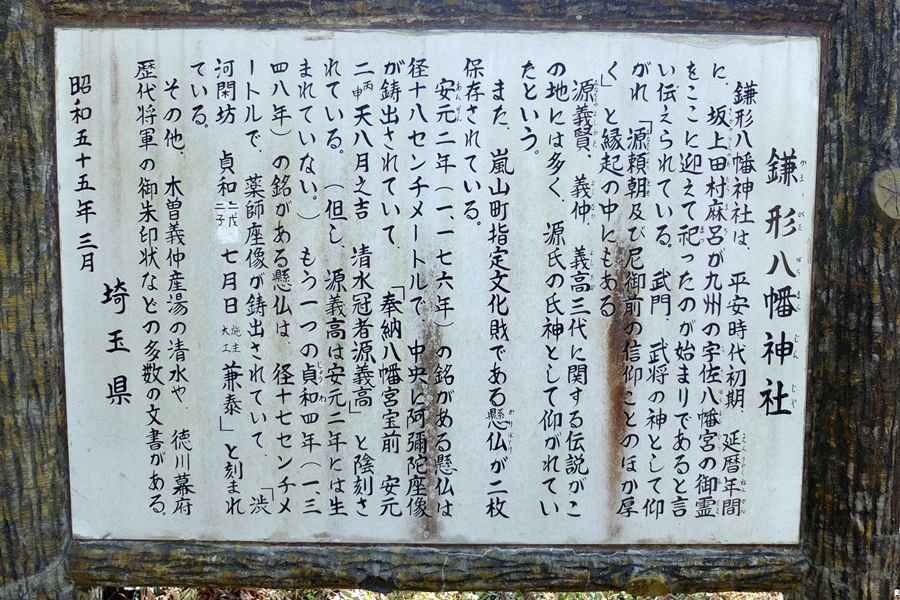 鎌形八幡神社
鎌形八幡神社は、平安時代初期、延暦年間
に、坂上田村麻呂が九州の宇佐八幡宮の御霊
をここに迎えて祀ったのが始まりであると言
い伝えられている。武門、武将の神として仰
がれ「源頼朝及び尼御前の信仰ことのほか厚
く」と縁起の中にもある。
源義賢、義仲、義高三代に関する伝説がこ
の地には多く、源氏の氏神として仰がれてい
たという。
また、嵐山町指定文化財である懸仏が二枚
保存されている。
安元二年（一、一七六年）の銘がある懸仏は
径十八センチメートルで、中央に阿彌陀座像
が鋳出されていて、「奉納八幡宮宝前 安元
二丙申天八月之吉 清水冠者源義高」と陰刻さ
れている。（但し、源義高は安元二年には生
まれていない。）もう一つの貞和四年（一三
四八年）の銘がある懸仏は、径十七センチメ
ートルで、薬師座像が鋳出されていて、「渋
河閑坊 貞和二戊二子 七月日 施主大工 兼泰」と刻まれ
ている。
その他、木曽義仲産湯の清水や、徳川幕府
歴代将軍の御朱印状などの多数の文書がある。
昭和五十五年三月
埼玉県